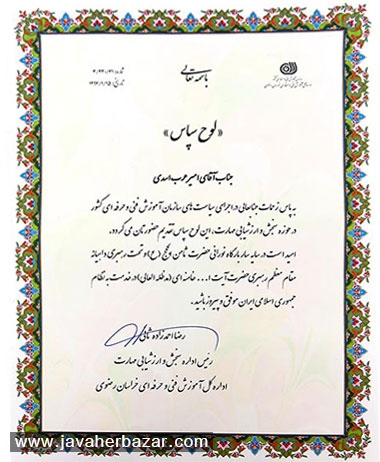 باسمه تعالی
«لوح سپاس»
جناب آقای امیر عرب اسدی
به پاس زحمات جنابعالی در اجرای سیاست های سازمان آموزش فنی و حرفه ای کشور
در حوزه سنجش و ارزشیابی مهارت، این لوح سپاس تقدیم حضورتان می گردد.
امید است در سایه سار بارگاه نورانی حضرت ثامن الحجج (ع) و تحت رهبری داهیانه
مقام معظم رهبری حضرت آیت ا... خامنه ای (مدظله العالی) در خدمت به نظام
جمهوری اسلامی ایران موفق و پیروز باشید.
رضا احمدزاده ثانی
رئیس اداره سنجش و ارزشیابی مهارت
اداره کل آموزش فنی و حرفه ای خراسان رضوی
www.javaherbazar.com